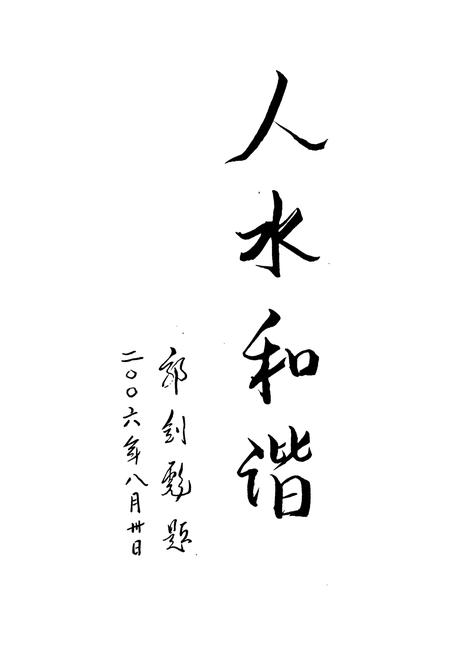 人水和谐
郭剑彪题
二〇〇六年八月卅日